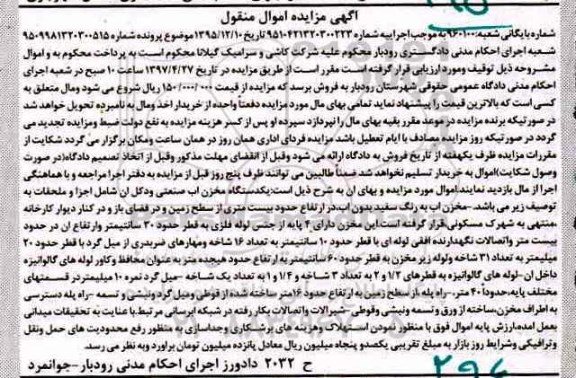 آگهی مزایده اموال منقول
شماره بایگانی شعبه: ۹۶۰۱۰۰ به موجب اجراییه شماره ۹۵۱۰۴۲۱۳۲۰۳۰۰۲۲۳ تاریخ ۱۳۹۵/۱۲/۱۰ موضوع پرونده شماره ۹۵۰۹۹۸۱۳۲۰۳۰۰۵۱۵
شعبه اجرای احکام مدنی دادگستری رودبار محکوم علیه شرکت کاشی و سرامیک گیلانا محکوم است به پرداخت محکوم به و اموال
مشروحه ذیل توقیف ومورد ارزیابی قرار گرفته است مقرر است از طریق مزایده در تاریخ ۱۳۹۷/۴/۲۷ ساعت ۱۰ صبح در شعبه اجرای
احکام مدنی دادگاه عمومی حقوقی شهرستان رودبار به فروش برسد که مزایده از قیمت ۱۵۰/۰۰۰/۰۰۰ ریال شروع می شود ومال متعلق به
کسی است که بالاترین قیمت را پیشنهاد نماید تمامی بهای مال مورد مزایده دفعتا واحده از خریدار اخذ ومال به نامبرده تحویل خواهد شد
در صورتیکه برنده مزایده در موعد مقرر بقیه بهای مال را نپردازد سپرده او پس از کسر هزینه مزایده به نفع دولت ضبط ومزایده تجدید می
گردد در صورتیکه روز مزایده مصادف با ایام تعطیل باشد مزایده فردای اداری همان روز در همان ساعت ومکان برگزار می گردد شکایت از
مقررات مزایده ظرف یکهفته از تاریخ فروش به دادگاه ارائه می شود وقبل از انقضای مهلت مذکور وقبل از اتخاذ تصمیم دادگاه(در صورت
وصول شکایت)اموال به خریدار تسلیم نخواهد شد ضمناً طالبین می توانند ظرف پنج روز قبل از مزایده به دفتر اجرا مراجعه و با هماهنگی
اجرا از مال بازدید نمایند.اموال مورد مزایده و بهای ان به شرح ذیل است:یکدستگاه مخزن اب صنعتی ودکل ان شامل اجزا و ملحقات به
توصیف زیر می باشد.-مخزن اب به رنگ سفید بدون اب،در ارتفاع حدود بیست متری از سطح زمین و در فضای باز و در کنار دیوار کارخانه
منتهی به شهرک مسکونی،قرار گرفته است این مخزن دارای ۴ پایه از جنس لوله فلزی به قطر حدود ۳۰ سانتیمتر وارتفاع ان در حدود
بیست متر واتصالات نگهدارنده افقی لوله ای با قطر حدود ۱۰ سانتیمتر به تعداد ۱۶ شاخه ومهارهای ضربدری از میل گرد با قطر حدود ۲۰
میلیمتر به تعداد ۳۱ شاخه ولوله زیر مخزن به قطر حدود ۶۰ سانتیمتر به ارتفاع حدود هیجده متر به عنوان محافظ وکاور لوله های گالوانیزه
داخل ان-لوله های گالوانیزه به قطرهای ۱/۲ و ۲ به تعداد ۳ شاخه و ۱/۴ و ۱ به تعداد یک شاخه -میل گرد نمره ۱۰ میلیمتر در قسمتهای
مختلف پایه،حدوداً ۴۰ متر.-راه پله،از سطح زمین به ارتفاع حدود ۱۶ متر ساخته شده از قوطی ومیل گرد ونبشی و تسمه -راه پله دسترسی
به اطراف مخزن،ساخته از ورق وتسمه ونبشی وقوطی -شیرالات واتصالات بکار رفته در شبکه ابرسانی مرتبط.با عنایت به تحقیقات میدانی
بعمل امده،ارزش پایه اموال فوق با منظور نمودن استهلاک وهزینه های برشکاری وجداسازی به منظور رفع محدودیت های حمل ونقل
وترافیکی وشرایط روز بازار به مبلغ تقریبی یکصدو پنجاه میلیون ریال معادل پانزده میلیون تومان براورد وبه نظر می رسد.
ح ۲۰۳۲ دادورز اجرای احکام مدنی رودبار-جوانمرد
۲۹۶